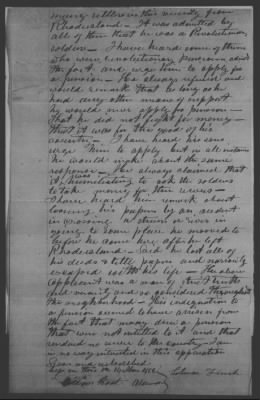 many settlers in this vicinity from
Rhodeisland – It was admitted by
all of them that he was a Revolutionary
soldier – I have heard some of them
who were revolutionary pensioners admit
the fact and urge him to apply for
a pension – He always refused and
would remark that as long as he
had any other means of support
he would never apply for pension –
That he did not fight for money –
that it was for the good of his
country – I have heard his sons
urge him to apply but in all instances
he would make about the same
response – He always claimed that
it was humiliating to ask the soldiers
to take money for their services –
I have heard him remark about
loosing his papers by an accident
in crossing a stream or river in
going to some place he moved to
before he came here after he left
Rhodeisland – Said he lost all of
his deeds & title papers and narrowly
escaped with his life – The above
applicant was a man of strict truth
and veracity and so considered throughout
the neighborhood – This indignation to
a pension seemed to have arisen from
the fact that many drew a pension
that were not entitled to it and that
rendered no service to the country – I am
in no way interested in this application
Sworn and subscribed